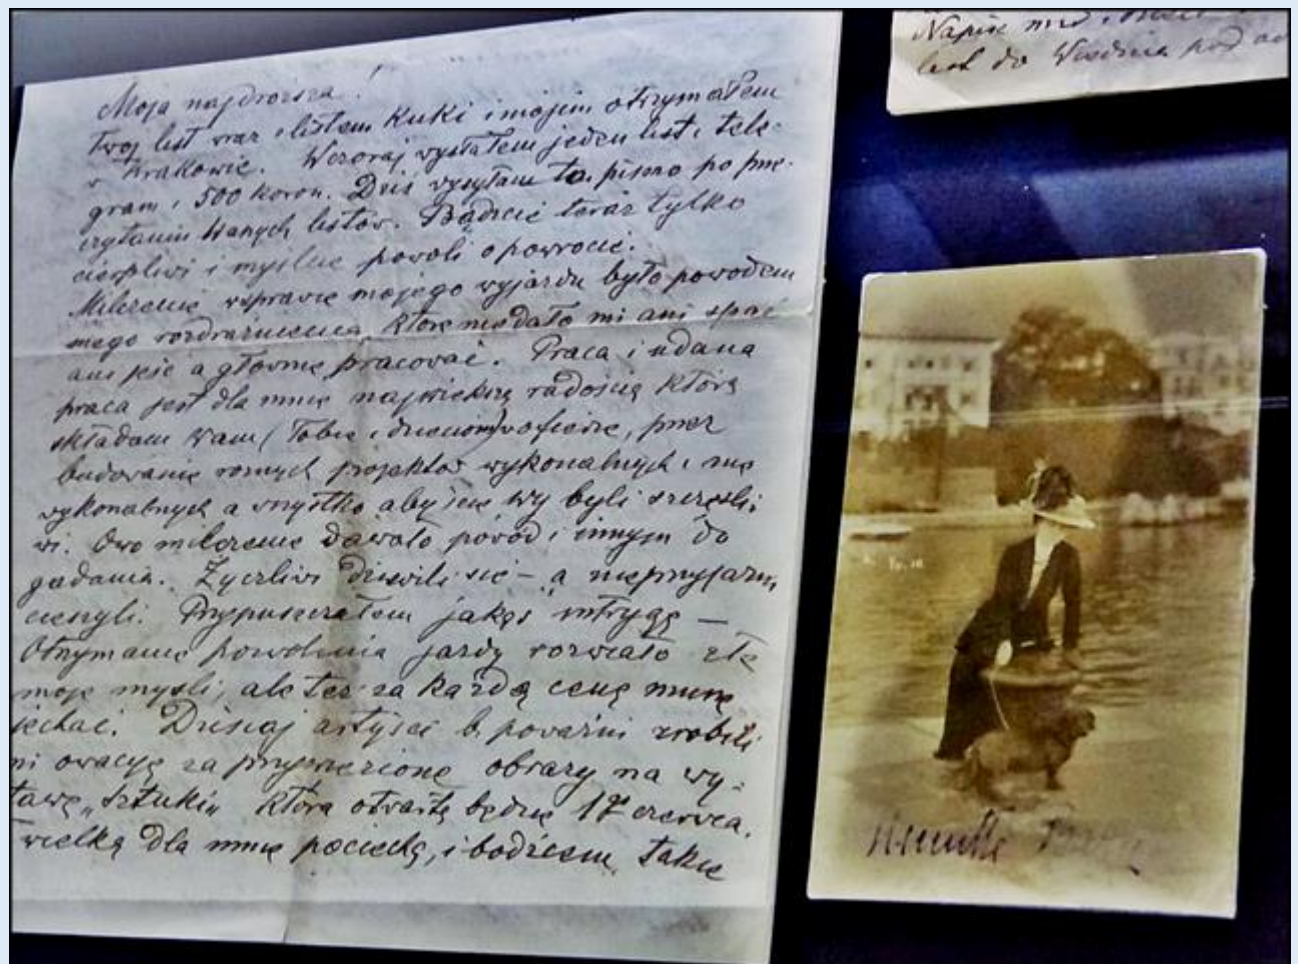 Moja najdroższa!
Twój list wraz z listem Kuki i mojem otrzymałem
w Krakowie. Wczoraj wysłałem jeden list i tele-
gram i 500 koron. Dziś wysyłam to pismo po prze-
czytaniu Wanych listów. Bądźcie teraz tylko
cierpliwi i myślcie powoli o powrocie.
Milczenie w sprawie mojego wyjazdu było powodem
mego rozdrażnienia, które nie dało mi ani spać
ani jeść a głównie pracować. Praca i udana
praca jest dla mnie największą radością którą
składam Wam (Tobie i dzieciom) w ofierze, przez
budowanie roznych projektów wykonalnych i nie
wykonalnych a wszystko abyście wy byli szczęśli-
wi. Owo milczenie dawało powód i innym do
gadania. Życzliwi dziwili się – a nieprzyjaźni
cieszyli. Przypuszczałem jakąś intrygę –
Otrzymanie pozwolenia jazdy rozwiało złe
moje myśli, ale też za każdą cenę muszę
jechać. Dzisiaj artyści b. poważni zrobili
mi owację za przywiezione obrazy na wy-
stawę „Sztuki„ która otwartą będzie 17 czerwca.
wielką dla mnie pociechą, i bodźcem, takie
Napisz
list do Wiednia pod